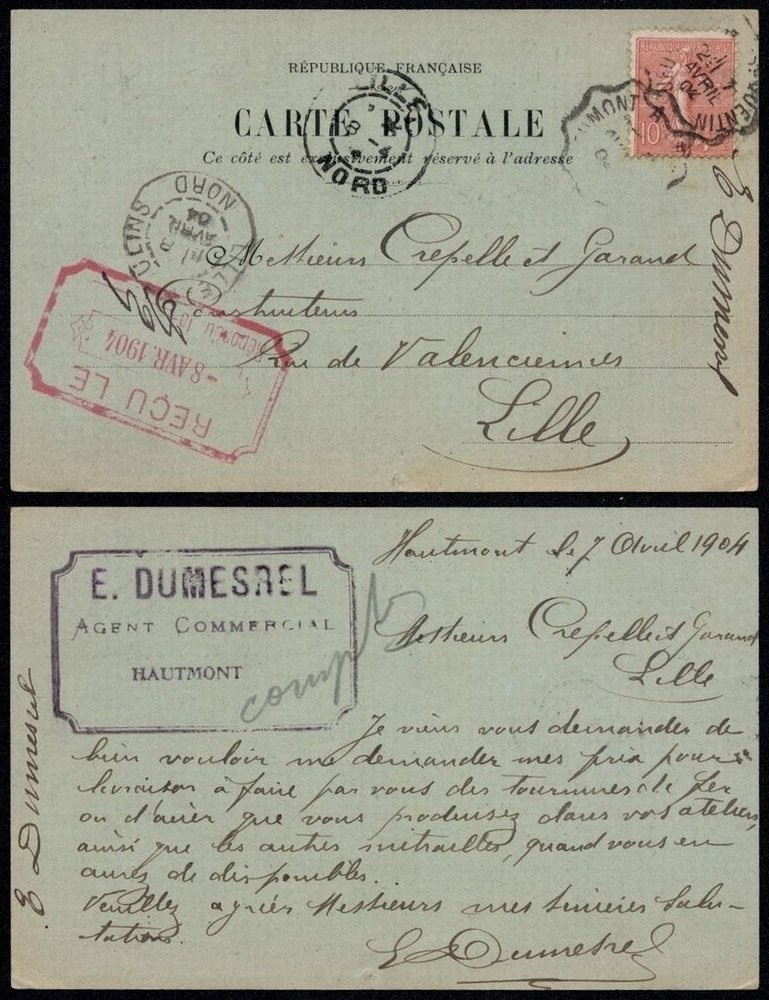 RÉPUBLIQUE FRANÇAISE
CARTE POSTALE
Ce côté est exclusivement réservé à l'adresse
RÉPUBLIQUE FRANÇAISE
10
AVRIL
LILLE
NORD
NORD
AVRIL
04
Messieurs Crepelle et Garand
Constructeurs
Rue de Valenciennes
Lille
E Dumesrel
REÇU LE
- 8 AVR. 1904
Répondu le
Hautmont le 7 Avril 1904
E. DUMESREL
AGENT COMMERCIAL
HAUTMONT
compte
Messieurs Crepelle et Garand
Lille
Je viens vous demander de
bien vouloir me demander mes prix pour
livraison à faire par vous des tournures de fer
ou d'acier que vous produisez dans vos ateliers,
ainsi que les autres mitrailles, quand vous en
aurez de disponibles.
Veuillez agréer Messieurs mes sincères Salu-
tations.
E Dumesrel
E Dumesrel